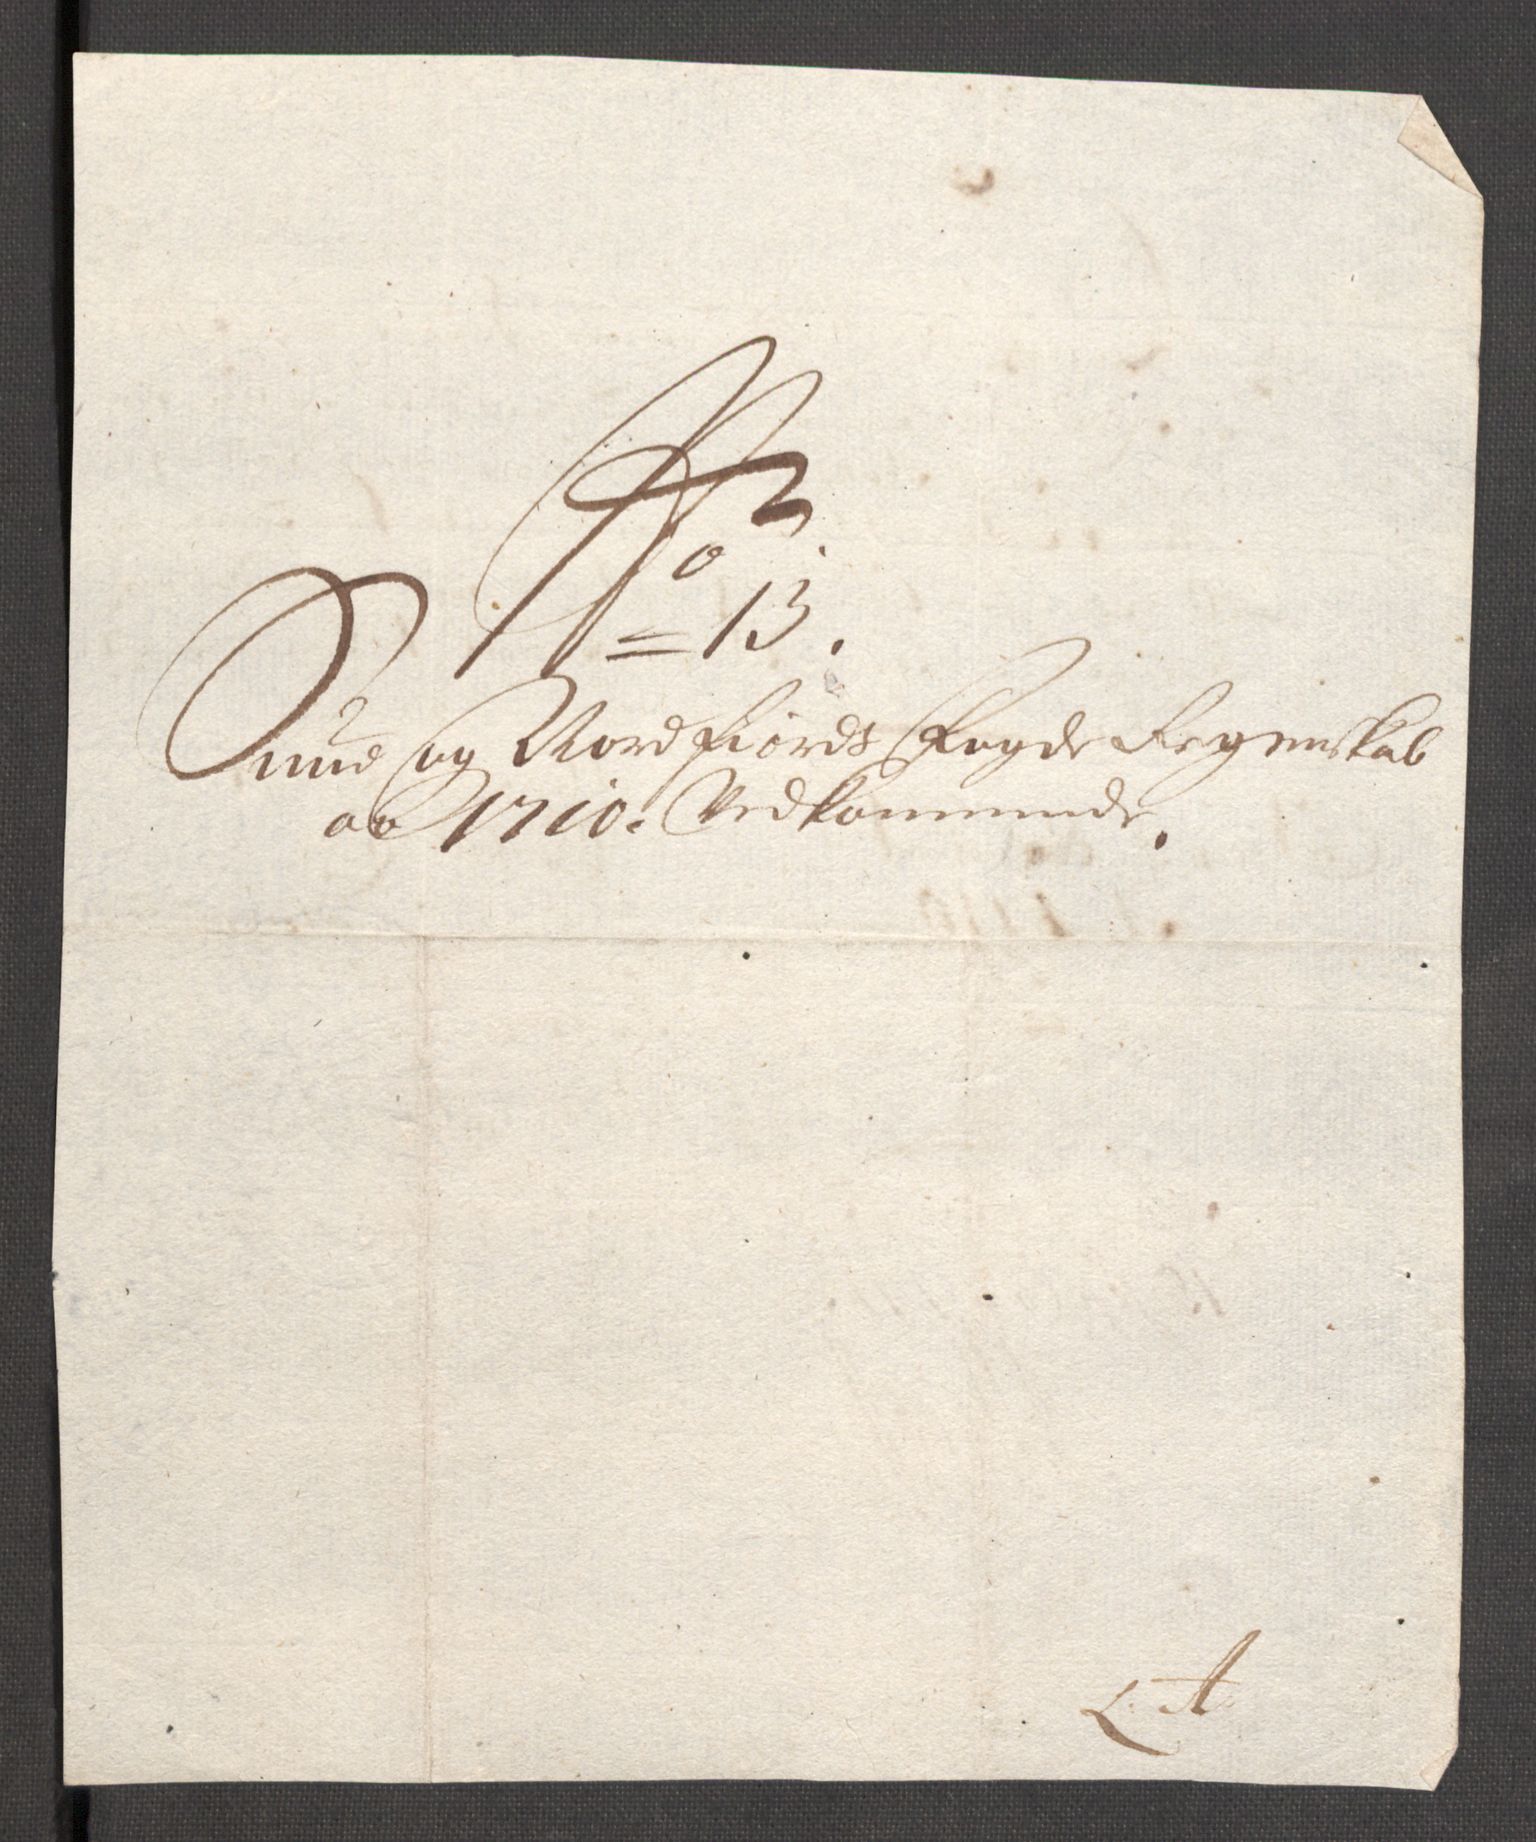 No
13.
Sund og Nordfiords Fogde Regenskab
ao 1710. Vedkommende.
L. A.